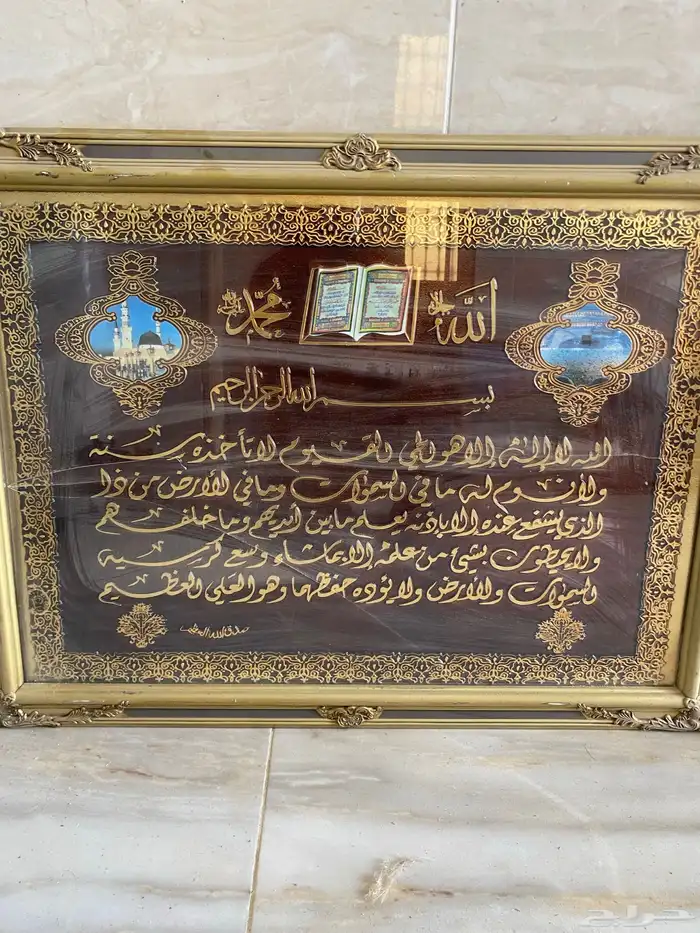 الله جل جلاله
محمد
بسم الله الرحمن الرحيم
الله لا إله إلا هو الحي القيوم لا تأخذه سنة
ولا نوم له ما في السموات وما في الأرض من ذا
الذي يشفع عنده إلا بإذنه يعلم ما بين أيديهم وما خلفهم
ولا يحيطون بشئ من علمه إلا بما شاء وسع كرسيه
السموات والأرض ولا يؤده حفظهما وهو العلي العظيم
صدق الله العظيم
حراج